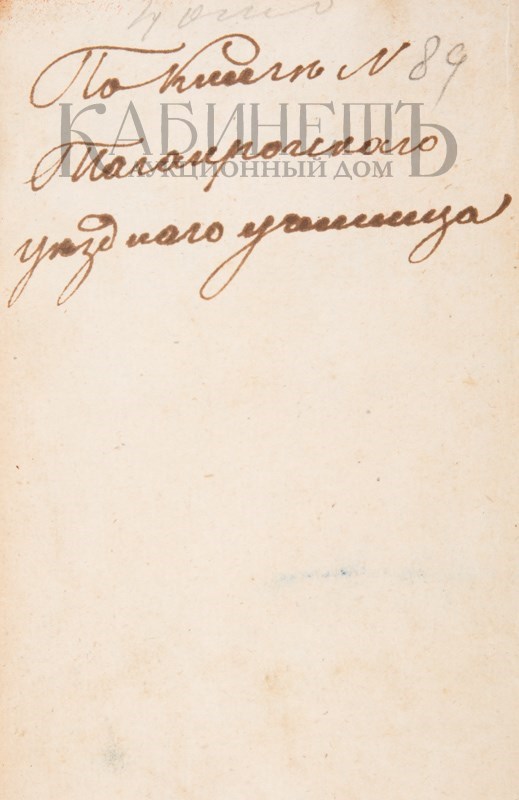 По Книгѣ N 89
КАБИНЕТЪ
Таганрогскаго
АУКЦИОННЫЙ ДОМ
уѣзднаго училища